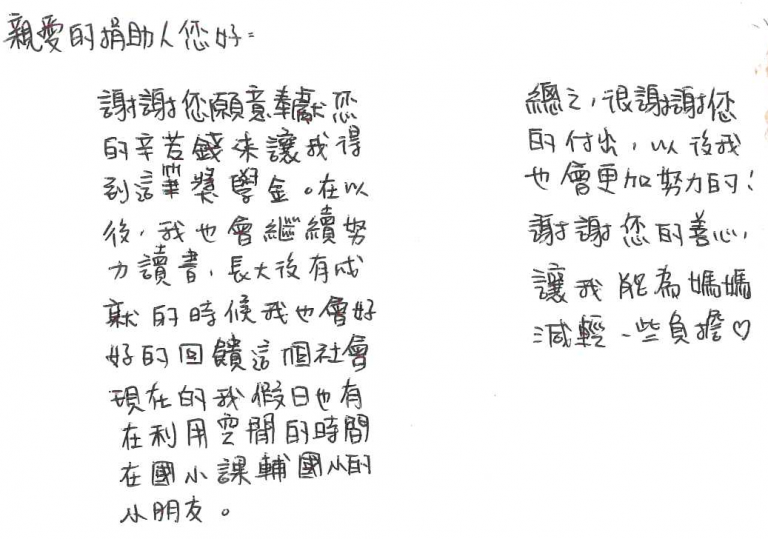 親愛的捐助人您好：
謝謝您願意奉獻您
的辛苦錢來讓我得
到這筆獎學金。在以
後，我也會繼續努
力讀書，長大後有成
就的時候我也會好
好的回饋這個社會
現在的我假日也有
在利用空閒的時間
在國小課輔國小的
小朋友。
總之，很謝謝您
的付出，以後我
也會更加努力的！
謝謝您的善心，
讓我能為媽媽
減輕一些負擔♡